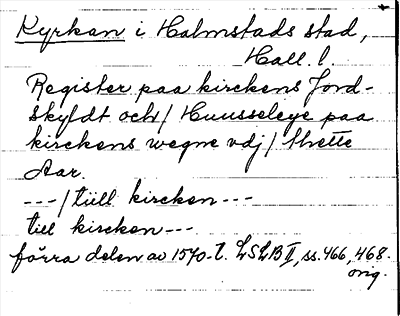 Kyrkan i Halmstads stad,
Hall. l.
Register paa kirckens Jord-
skyldt och/ Huusseleye paa
kirckens wegne vdj/ thette
Aar.
---/tiill kircken---
till kircken---
förra delen av 1570-t. LSLB II, ss. 466, 468.
orig.